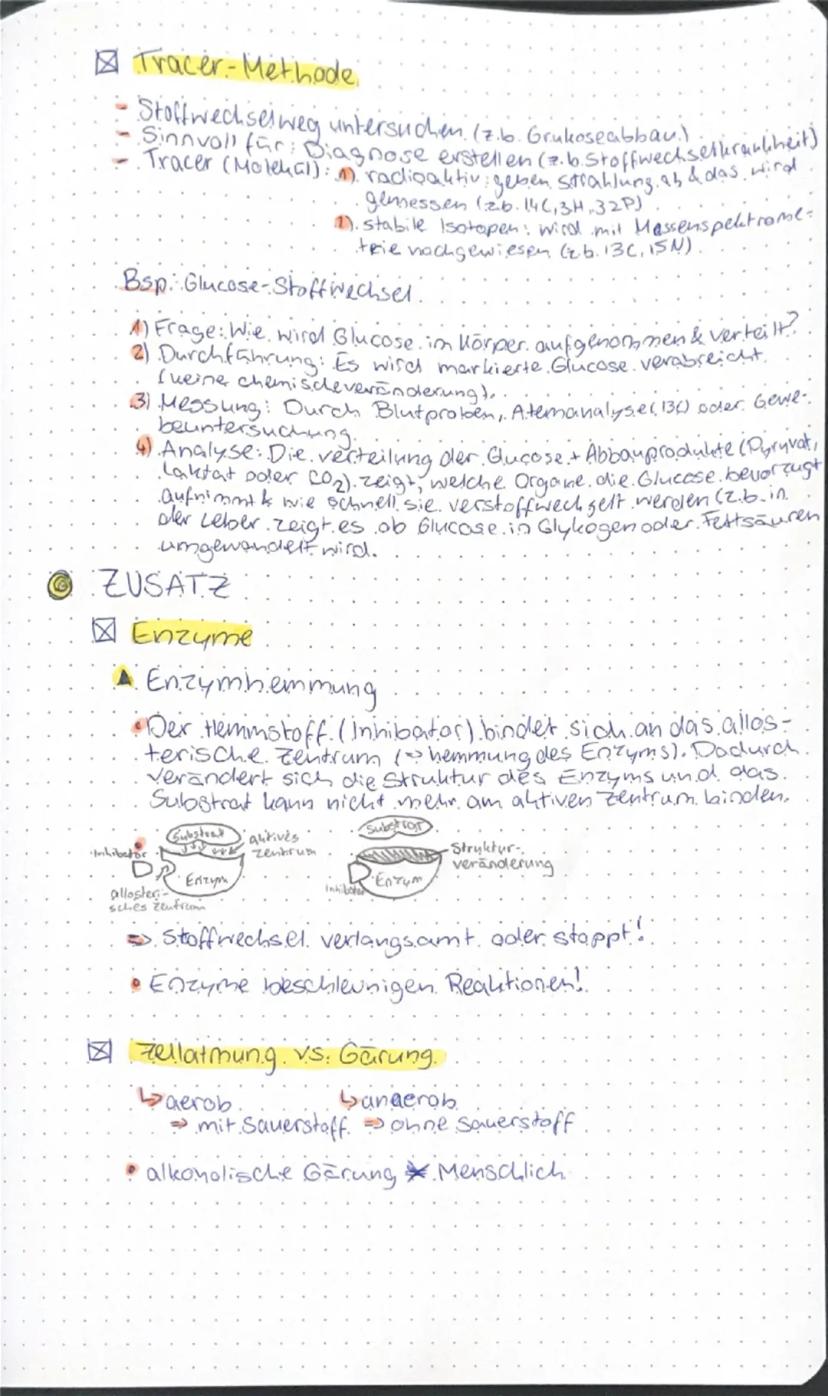 Tracer-Methode
- Stoffwechselweg untersuchen (z.b. Grukoseabbau)
- Sinnvoll für: Diagnose erstellen (z.b. Stoffwechselkrankheit)
- Tracer (Molekül): 1) radioaktiv: geben Strahlung ab & das wird
gemessen (z.b. 14C, 3H, 32P)
2) stabile Isotopen: wird mit Massenspektrome-
trie nachgewiesen (z.b. 13C, 15N)
Bsp: Glucose-Stoffwechsel
1) Frage: Wie wird Glucose im Körper aufgenommen & verteilt?
2) Durchführung: Es wird markierte Glucose verabreicht
(keine chemische veränderung).
3) Messung: Durch Blutproben, Atemanalyse (13C) oder Gewe-
beuntersuchung
4) Analyse: Die verteilung der Glucose + Abbauprodukte (Pyruvat,
Laktat oder CO2) zeigt, welche Organe die Glucose bevorzugt
aufnimmt & wie schnell sie verstoffwechselt werden (z.b. in
der Leber zeigt es ob Glucose in Glykogen oder Fettsäuren
umgewandelt wird.
ZUSATZ
Enzyme
Enzymhemmung
• Der Hemmstoff (Inhibator) bindet sich an das allos-
terische Zentrum (⇒ hemmung des Enzyms). Dadurch
verändert sich die Struktur des Enzyms und das
Substrat kann nicht mehr am aktiven Zentrum binden.
Substrat aktives Substrat
Inhibator zentrum Struktur-
veränderung
Enzym Enzym
Inhibator
alloster-
sches Zentrum
⇒ Stoffwechsel verlangsamt oder stoppt!
• Enzyme beschleunigen Reaktionen!
Zellatmung vs. Gärung
↳ aerob ↳ anaerob
⇒ mit Sauerstoff ⇒ ohne Sauerstoff
• alkoholische Gärung Menschlich